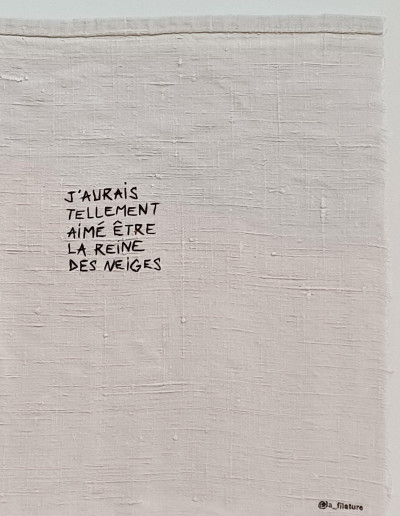 J'AURAIS
TELLEMENT
AIMÉ ÊTRE
LA REINE
DES NEIGES
@la_filature